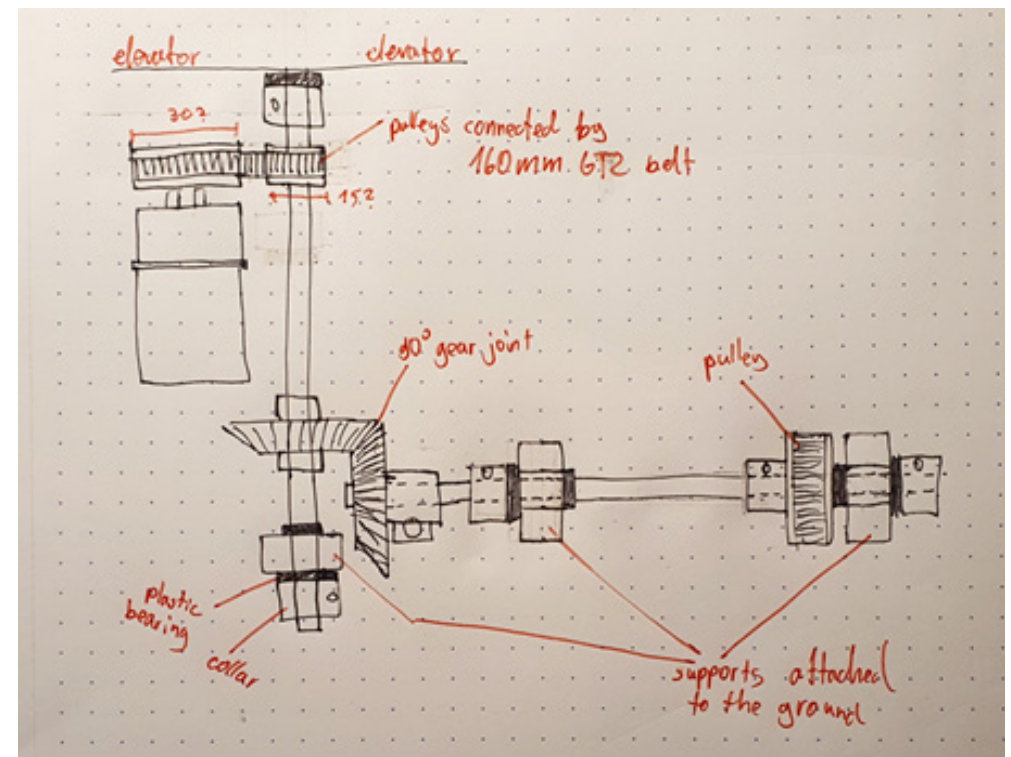 elevator elevator
30?
pulleys connected by
160mm GT2 belt
15?
90° gear joint
pulley
plastic
bearing
collar
supports attached
to the ground